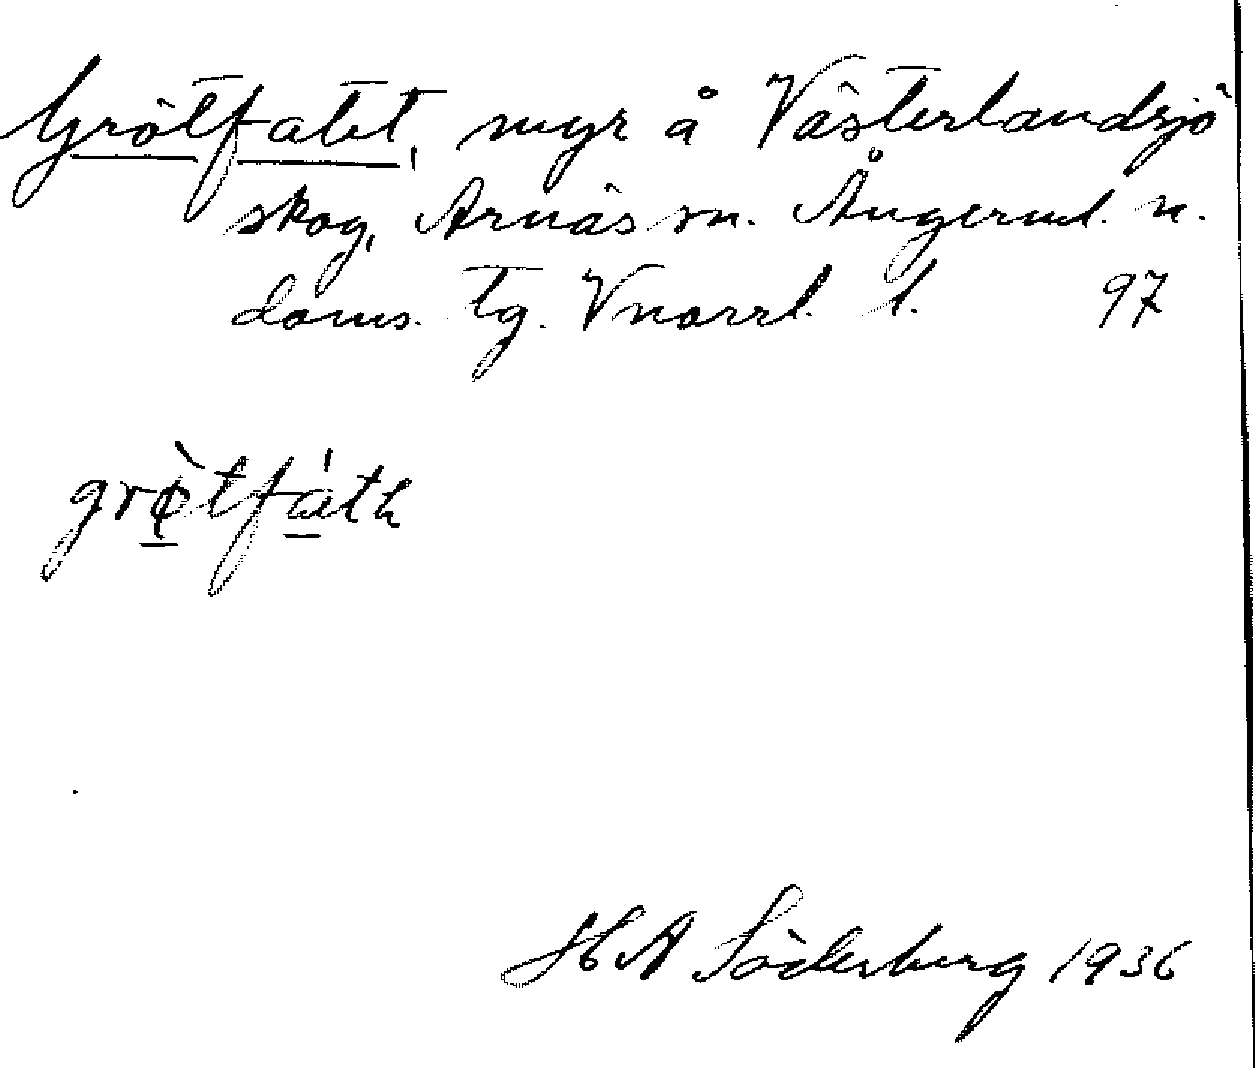 Grötfatet, myr å Västerlandsjö
skog, Arnäs sn. Ångerml. n.
doms. tg. Vnorrl. l. 97
grø̀tfátɩ
HA Söderberg 1936